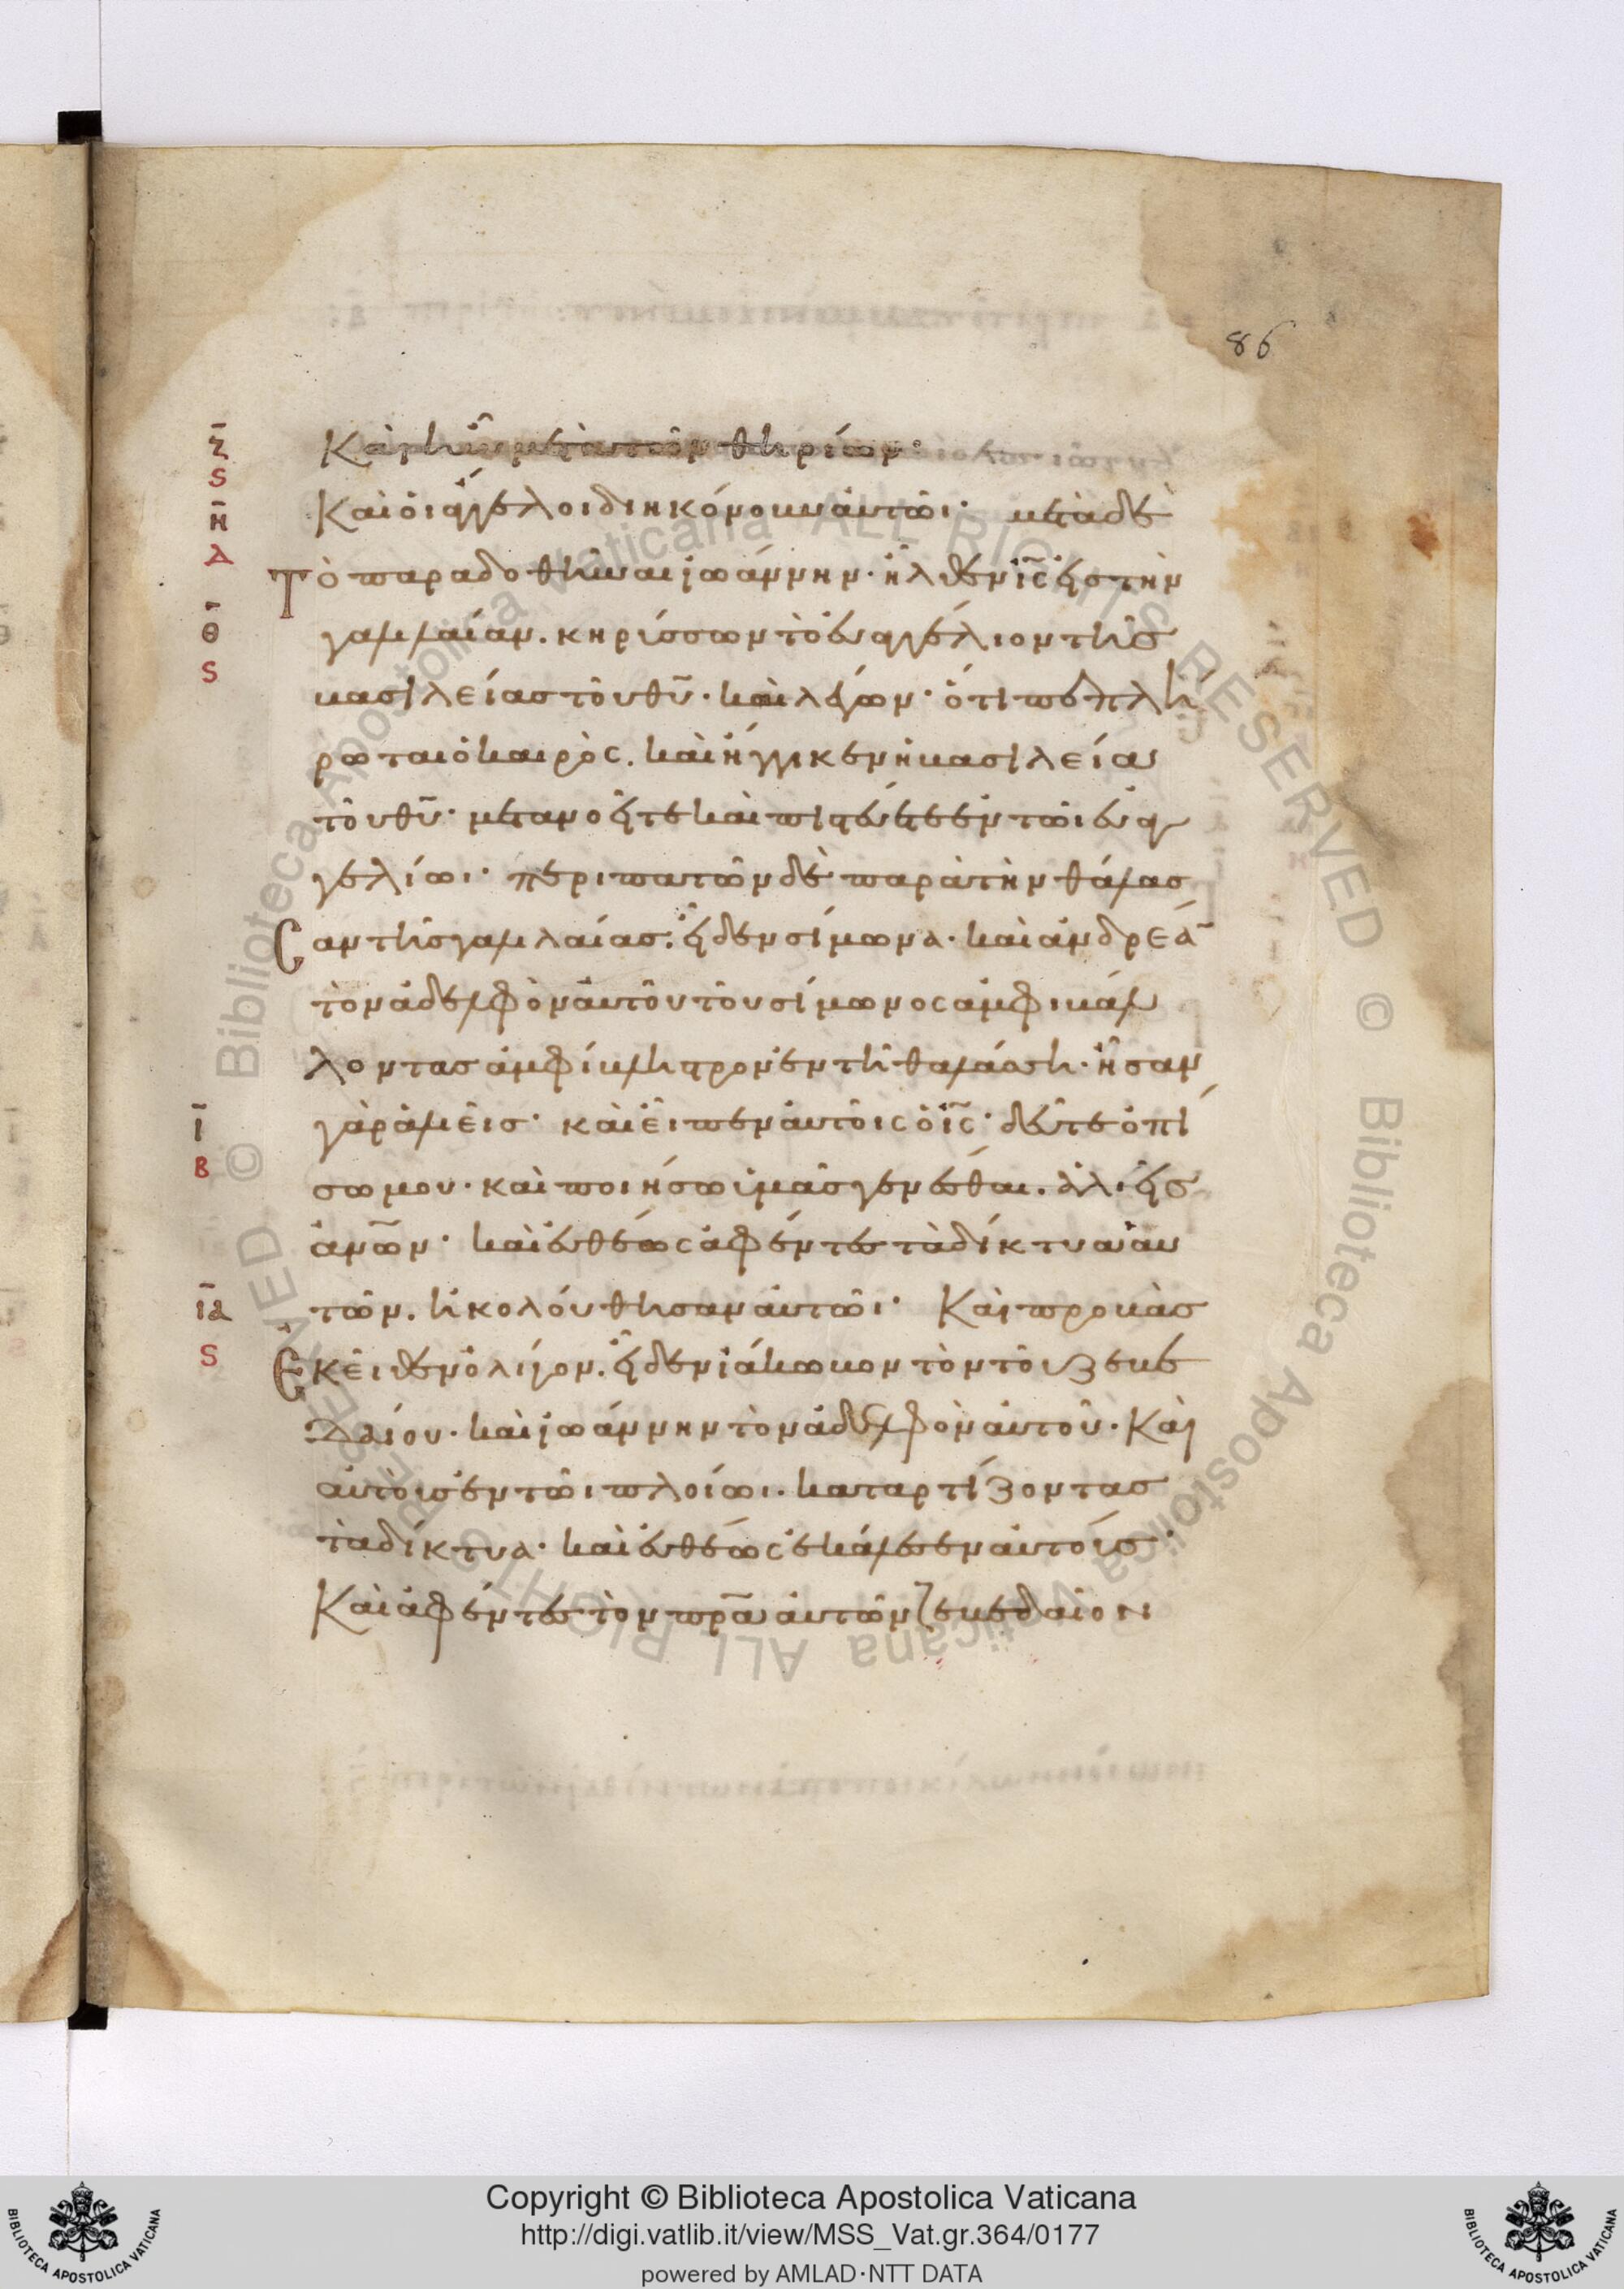 86
ζ
ς
Καὶ ἦν μετὰ τῶν θηρίων·
η
Δ
Καὶ οἱ ἄγγελοι διηκόνουν αὐτῶι· μετὰ δὲ
Τὸ παραδοθῆναι ἰωάννην· ἦλθεν ις εἰς τὴν
θ
ς
γαλιλαίαν. κηρύσσων τὸ εὐαγγέλιον τῆς
βασιλείας τοῦ θυ· καὶ λέγων· ὅτι πεπλή
ρωται ὁ καιρὸς. καὶ ἤγγικεν ἡ βασιλεία
τοῦ θυ· μετανοεῖτε καὶ πιστεύετε ἐν τῶι εὐαγ
γελίωι· περιπατῶν δὲ παρὰ τὴν θάλασ
Σαν τῆς γαλιλαίας· εἶδεν σίμωνα· καὶ ἀνδρέα
τὸν ἀδελφὸν αὐτοῦ τοῦ σίμωνος ἀμφιβάλ
λοντας ἀμφίβληστρον ἐν τῆ θαλάσση· ἦσαν
γὰρ ἁλιεῖς· καὶ εἶπεν αὐτοῖς ὁ ις· δεῦτε ὀπί
ι
β
σω μου· καὶ ποιήσω ὑμᾶς γενέσθαι. ἁλιεῖς
ἀνων· καὶ εὐθέως ἀφέντες τὰ δίκτυα αὐ
ια
ς
τῶν. ἠκολούθησαν αὐτῶι· Καὶ προβὰς
Ἐκεῖθεν ὀλίγον. εἶδεν ἰάκωβον τὸν τοῦ ζεβε
δαίου· καὶ ἰωάννην τὸν ἀδελφὸν αὐτοῦ· Καὶ
αὐτοὺς ἐν τῶι πλοίωι. καταρτίζοντας
τὰ δίκτυα· καὶ εὐθέως ἐκάλεσεν αὐτούς·
Καὶ ἀφέντες τὸν πρα αὐτῶν ζεβεδαῖον
Copyright © Biblioteca Apostolica Vaticana
http://digi.vatlib.it/view/MSS_Vat.gr.364/0177
powered by AMLAD·NTT DATA
BIBLIOTECA APOSTOLICA VATICANA
BIBLIOTECA APOSTOLICA VATICANA
© Biblioteca Apostolica Vaticana ALL RIGHTS RESERVED
© Biblioteca Apostolica Vaticana ALL RIGHTS RESERVED